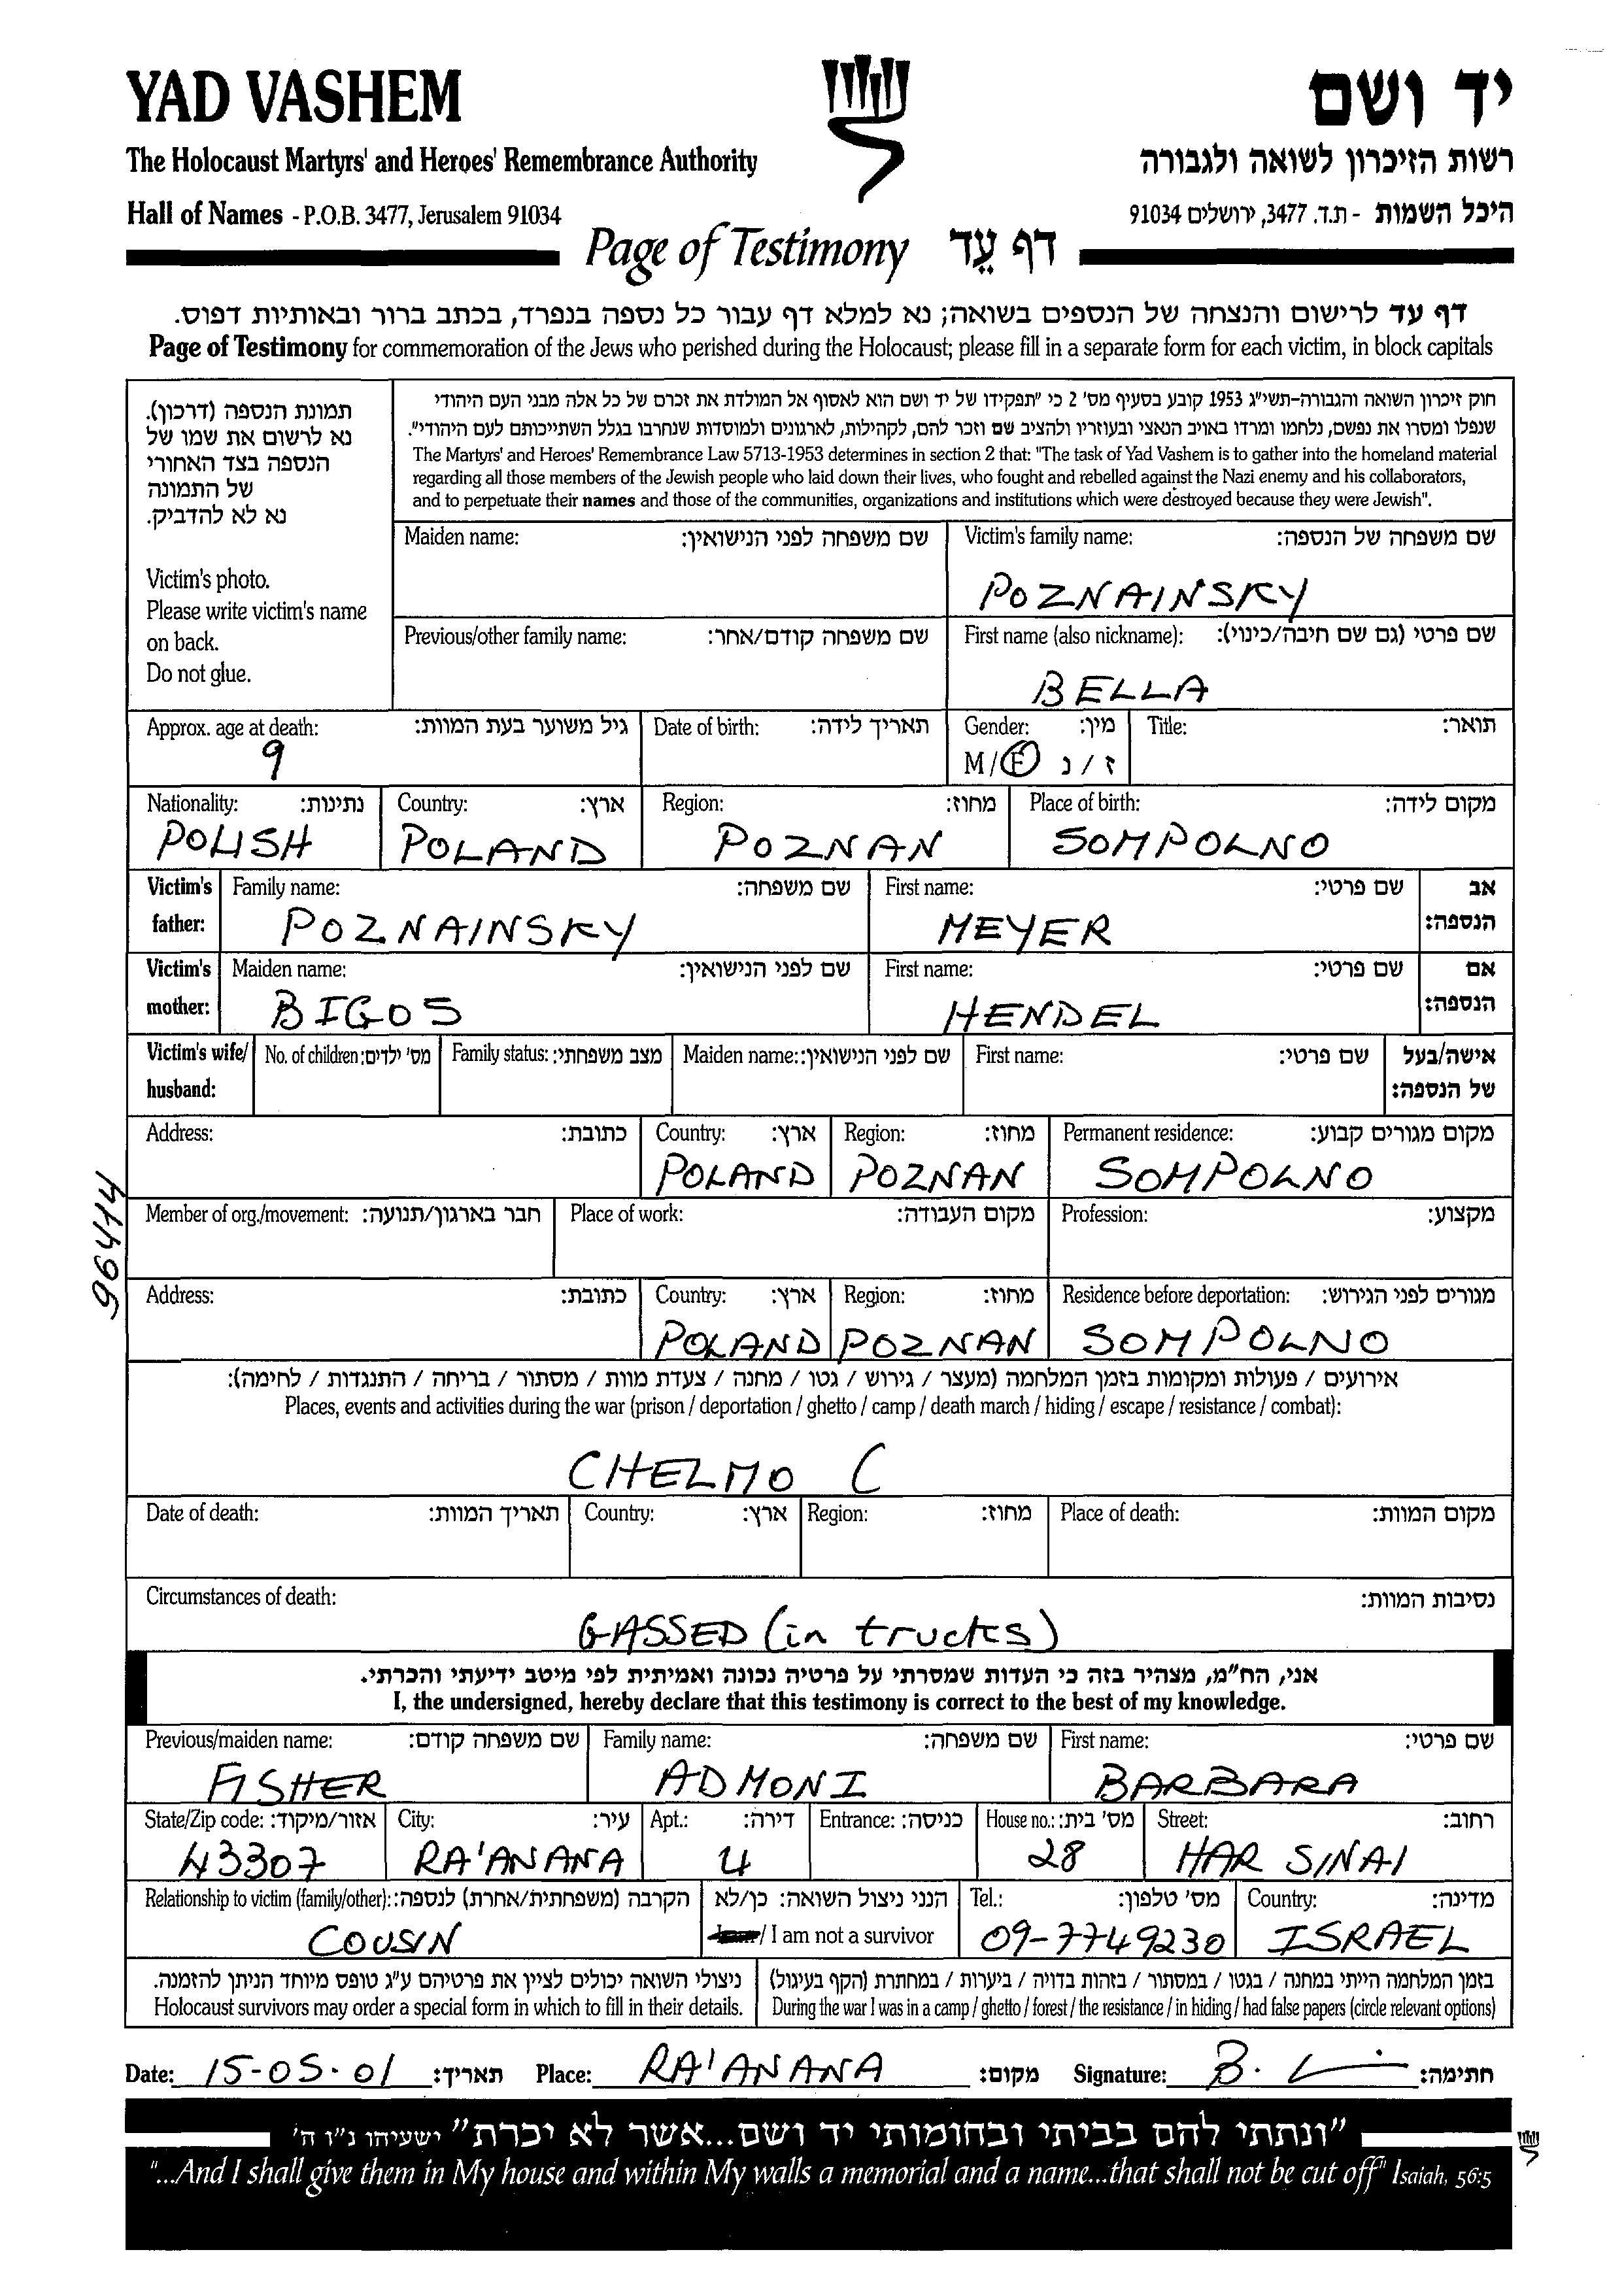 YAD VASHEM
יד ושם
The Holocaust Martyrs' and Heroes' Remembrance Authority
רשות הזיכרון לשואה ולגבורה
Hall of Names - P.O.B. 3477, Jerusalem 91034
היכל השמות - ת.ד. 3477, ירושלים 91034
Page of Testimony דף עֵד
דף עד לרישום והנצחה של הנספים בשואה; נא למלא דף עבור כל נספה בנפרד, בכתב ברור ובאותיות דפוס.
Page of Testimony for commemoration of the Jews who perished during the Holocaust; please fill in a separate form for each victim, in block capitals
תמונת הנספה (דרכון).
נא לרשום את שמו של
הנספה בצד האחורי
של התמונה
נא לא להדביק.
Victim's photo.
Please write victim's name
on back.
Do not glue.
חוק זיכרון השואה והגבורה-תשי"ג 1953 קובע בסעיף מס' 2 כי "תפקידו של יד ושם הוא לאסוף אל המולדת את זכרם של כל אלה מבני העם היהודי
שנפלו ומסרו את נפשם, נלחמו ומרדו באויב הנאצי ובעוזריו ולהציב שם וזכר להם, לקהילות, לארגונים ולמוסדות שנחרבו בגלל השתייכותם לעם היהודי".
The Martyrs' and Heroes' Remembrance Law 5713-1953 determines in section 2 that: "The task of Yad Vashem is to gather into the homeland material
regarding all those members of the Jewish people who laid down their lives, who fought and rebelled against the Nazi enemy and his collaborators,
and to perpetuate their names and those of the communities, organizations and institutions which were destroyed because they were Jewish".
Maiden name: שם משפחה לפני הנישואין:
Victim's family name: שם משפחה של הנספה:
POZNAINSKY
Previous/other family name: שם משפחה קודם/אחר:
First name (also nickname): שם פרטי (גם שם חיבה/כינוי):
BELLA
Approx. age at death: גיל משוער בעת המוות:
9
Date of birth: תאריך לידה:
Gender: מין:
M/F ז/נ
Title: תואר:
Nationality: נתינות:
POLISH
Country: ארץ:
POLAND
Region: מחוז:
POZNAN
Place of birth: מקום לידה:
SOMPOLNO
Victim's father:
Family name: שם משפחה:
POZNAINSKY
First name: שם פרטי:
MEYER
אב הנספה:
Victim's mother:
Maiden name: שם לפני הנישואין:
BIGOS
First name: שם פרטי:
HENDEL
אם הנספה:
Victim's wife/ husband:
No. of children: מס' ילדים:
Family status: מצב משפחתי:
Maiden name: שם לפני הנישואין:
First name: שם פרטי:
אישה/בעל של הנספה:
Address: כתובת:
Country: ארץ:
POLAND
Region: מחוז:
POZNAN
Permanent residence: מקום מגורים קבוע:
SOMPOLNO
96414
Member of org./movement: חבר בארגון/תנועה:
Place of work: מקום העבודה:
Profession: מקצוע:
Address: כתובת:
Country: ארץ:
POLAND
Region: מחוז:
POZNAN
Residence before deportation: מגורים לפני הגירוש:
SOMPOLNO
אירועים / פעולות ומקומות בזמן המלחמה (מעצר / גירוש / גטו / מחנה / צעדת מוות / מסתור / בריחה / התנגדות / לחימה):
Places, events and activities during the war (prison / deportation / ghetto / camp / death march / hiding / escape / resistance / combat):
CHELMO (
Date of death: תאריך המוות:
Country: ארץ:
Region: מחוז:
Place of death: מקום המוות:
Circumstances of death: נסיבות המוות:
GASSED (in trucks)
אני, הח"מ, מצהיר בזה כי העדות שמסרתי על פרטיה נכונה ואמיתית לפי מיטב ידיעתי והכרתי.
I, the undersigned, hereby declare that this testimony is correct to the best of my knowledge.
Previous/maiden name: שם משפחה קודם:
FISHER
Family name: שם משפחה:
ADMONI
First name: שם פרטי:
BARBARA
State/Zip code: אזור/מיקוד:
43307
City: עיר:
RA'ANANA
Apt.: דירה:
4
Entrance: כניסה:
House no.: מס' בית:
28
Street: רחוב:
HAR SINAI
Relationship to victim (family/other): הקרבה (משפחתית/אחרת) לנספה:
COUSIN
הנני ניצול השואה: כן/לא
/ I am not a survivor
Tel.: מס' טלפון:
09-7749230
Country: מדינה:
ISRAEL
ניצולי השואה יכולים לציין את פרטיהם ע"ג טופס מיוחד הניתן להזמנה.
Holocaust survivors may order a special form in which to fill in their details.
בזמן המלחמה הייתי במחנה / בגטו / במסתור / בזהות בדויה / ביערות / במחתרת (הקף בעיגול)
During the war I was in a camp / ghetto / forest / the resistance / in hiding / had false papers (circle relevant options)
Date: 15-05-01 תאריך: Place: RA'ANANA מקום: Signature: B. חתימה:
"ונתתי להם בביתי ובחומותי יד ושם...אשר לא יכרת" ישעיהו נ"ו ה'
"...And I shall give them in My house and within My walls a memorial and a name...that shall not be cut off" Isaiah, 56:5